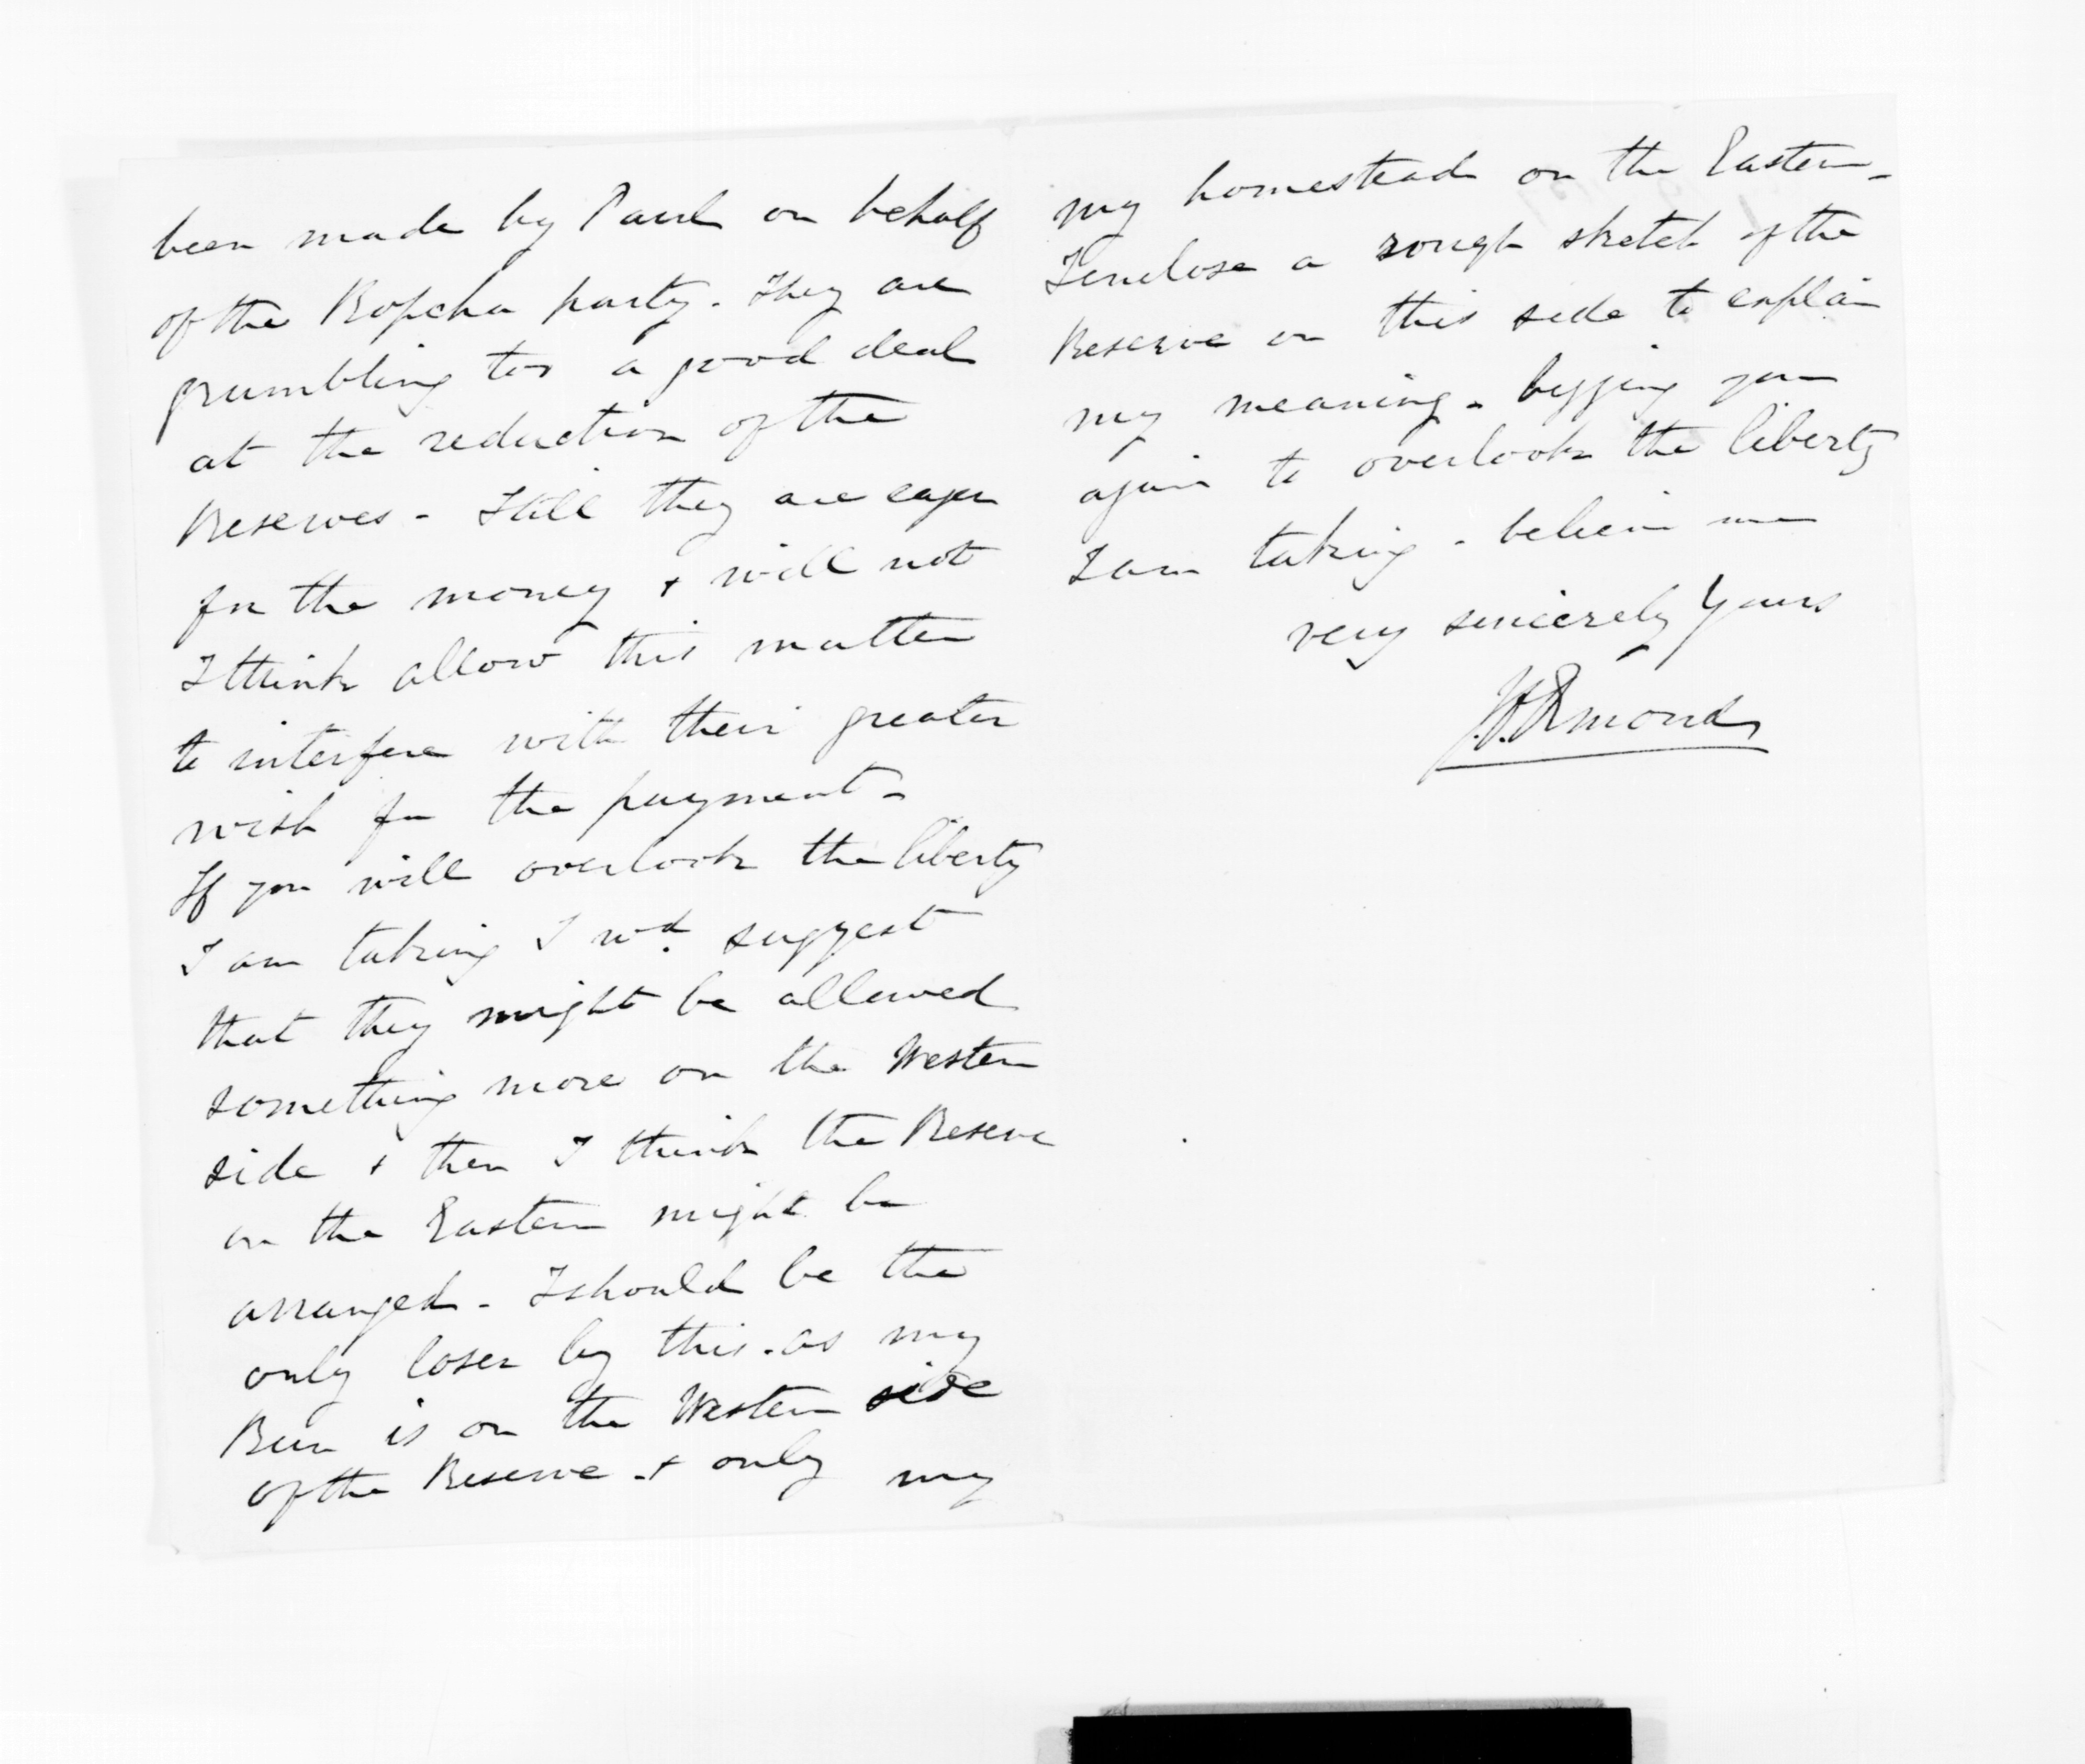 been made by Paul on behalf
of the Kopeha party. They are
grumbling too a good deal
at the reduction of the
Reserves - Still they are eager
for the money & will not
I think allow this matter
to interfere with their greater
wish for the payment -
If you will overlook the liberty
I am taking I wd. suggest
that they might be allowed
something more on the Western
side & then I think the Reserve
on the Eastern might be
arranged - I should be the
only loser by this - as my
Run is on the Western side
of the Reserve - & only my
my homestead on the Eastern -
I enclose a rough sketch of the
Reserve on this side to explain
my meaning - begging you
again to overlook the liberty
I am taking - believe me
very sincerely Yours